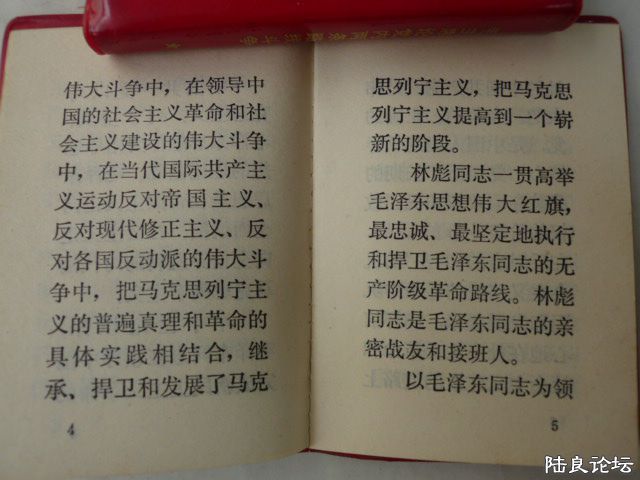 伟大斗争中，在领导中
国的社会主义革命和社
会主义建设的伟大斗争
中，在当代国际共产主
义运动反对帝国主义、
反对现代修正主义、反
对各国反动派的伟大斗
争中，把马克思列宁主
义的普遍真理和革命的
具体实践相结合，继
承、捍卫和发展了马克
4
思列宁主义，把马克思
列宁主义提高到一个崭
新的阶段。
林彪同志一贯高举
毛泽东思想伟大红旗，
最忠诚、最坚定地执行
和捍卫毛泽东同志的无
产阶级革命路线。林彪
同志是毛泽东同志的亲
密战友和接班人。
以毛泽东同志为领
5
陆良论坛